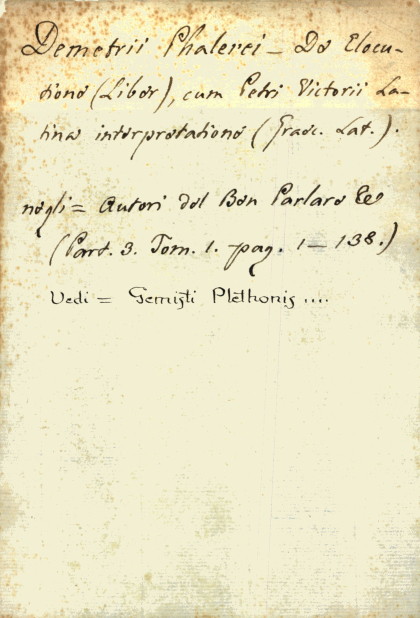 Demetrii Phalerei – De Elocu-
tione (Liber), cum Petri Victorii La-
tina interpretatione (Graec. Lat.).
negli = Autori del Ben Parlare Ec
(Part. 3. Tom. 1. pag. 1–138.)
Vedi = Gemisti Plethonis ....